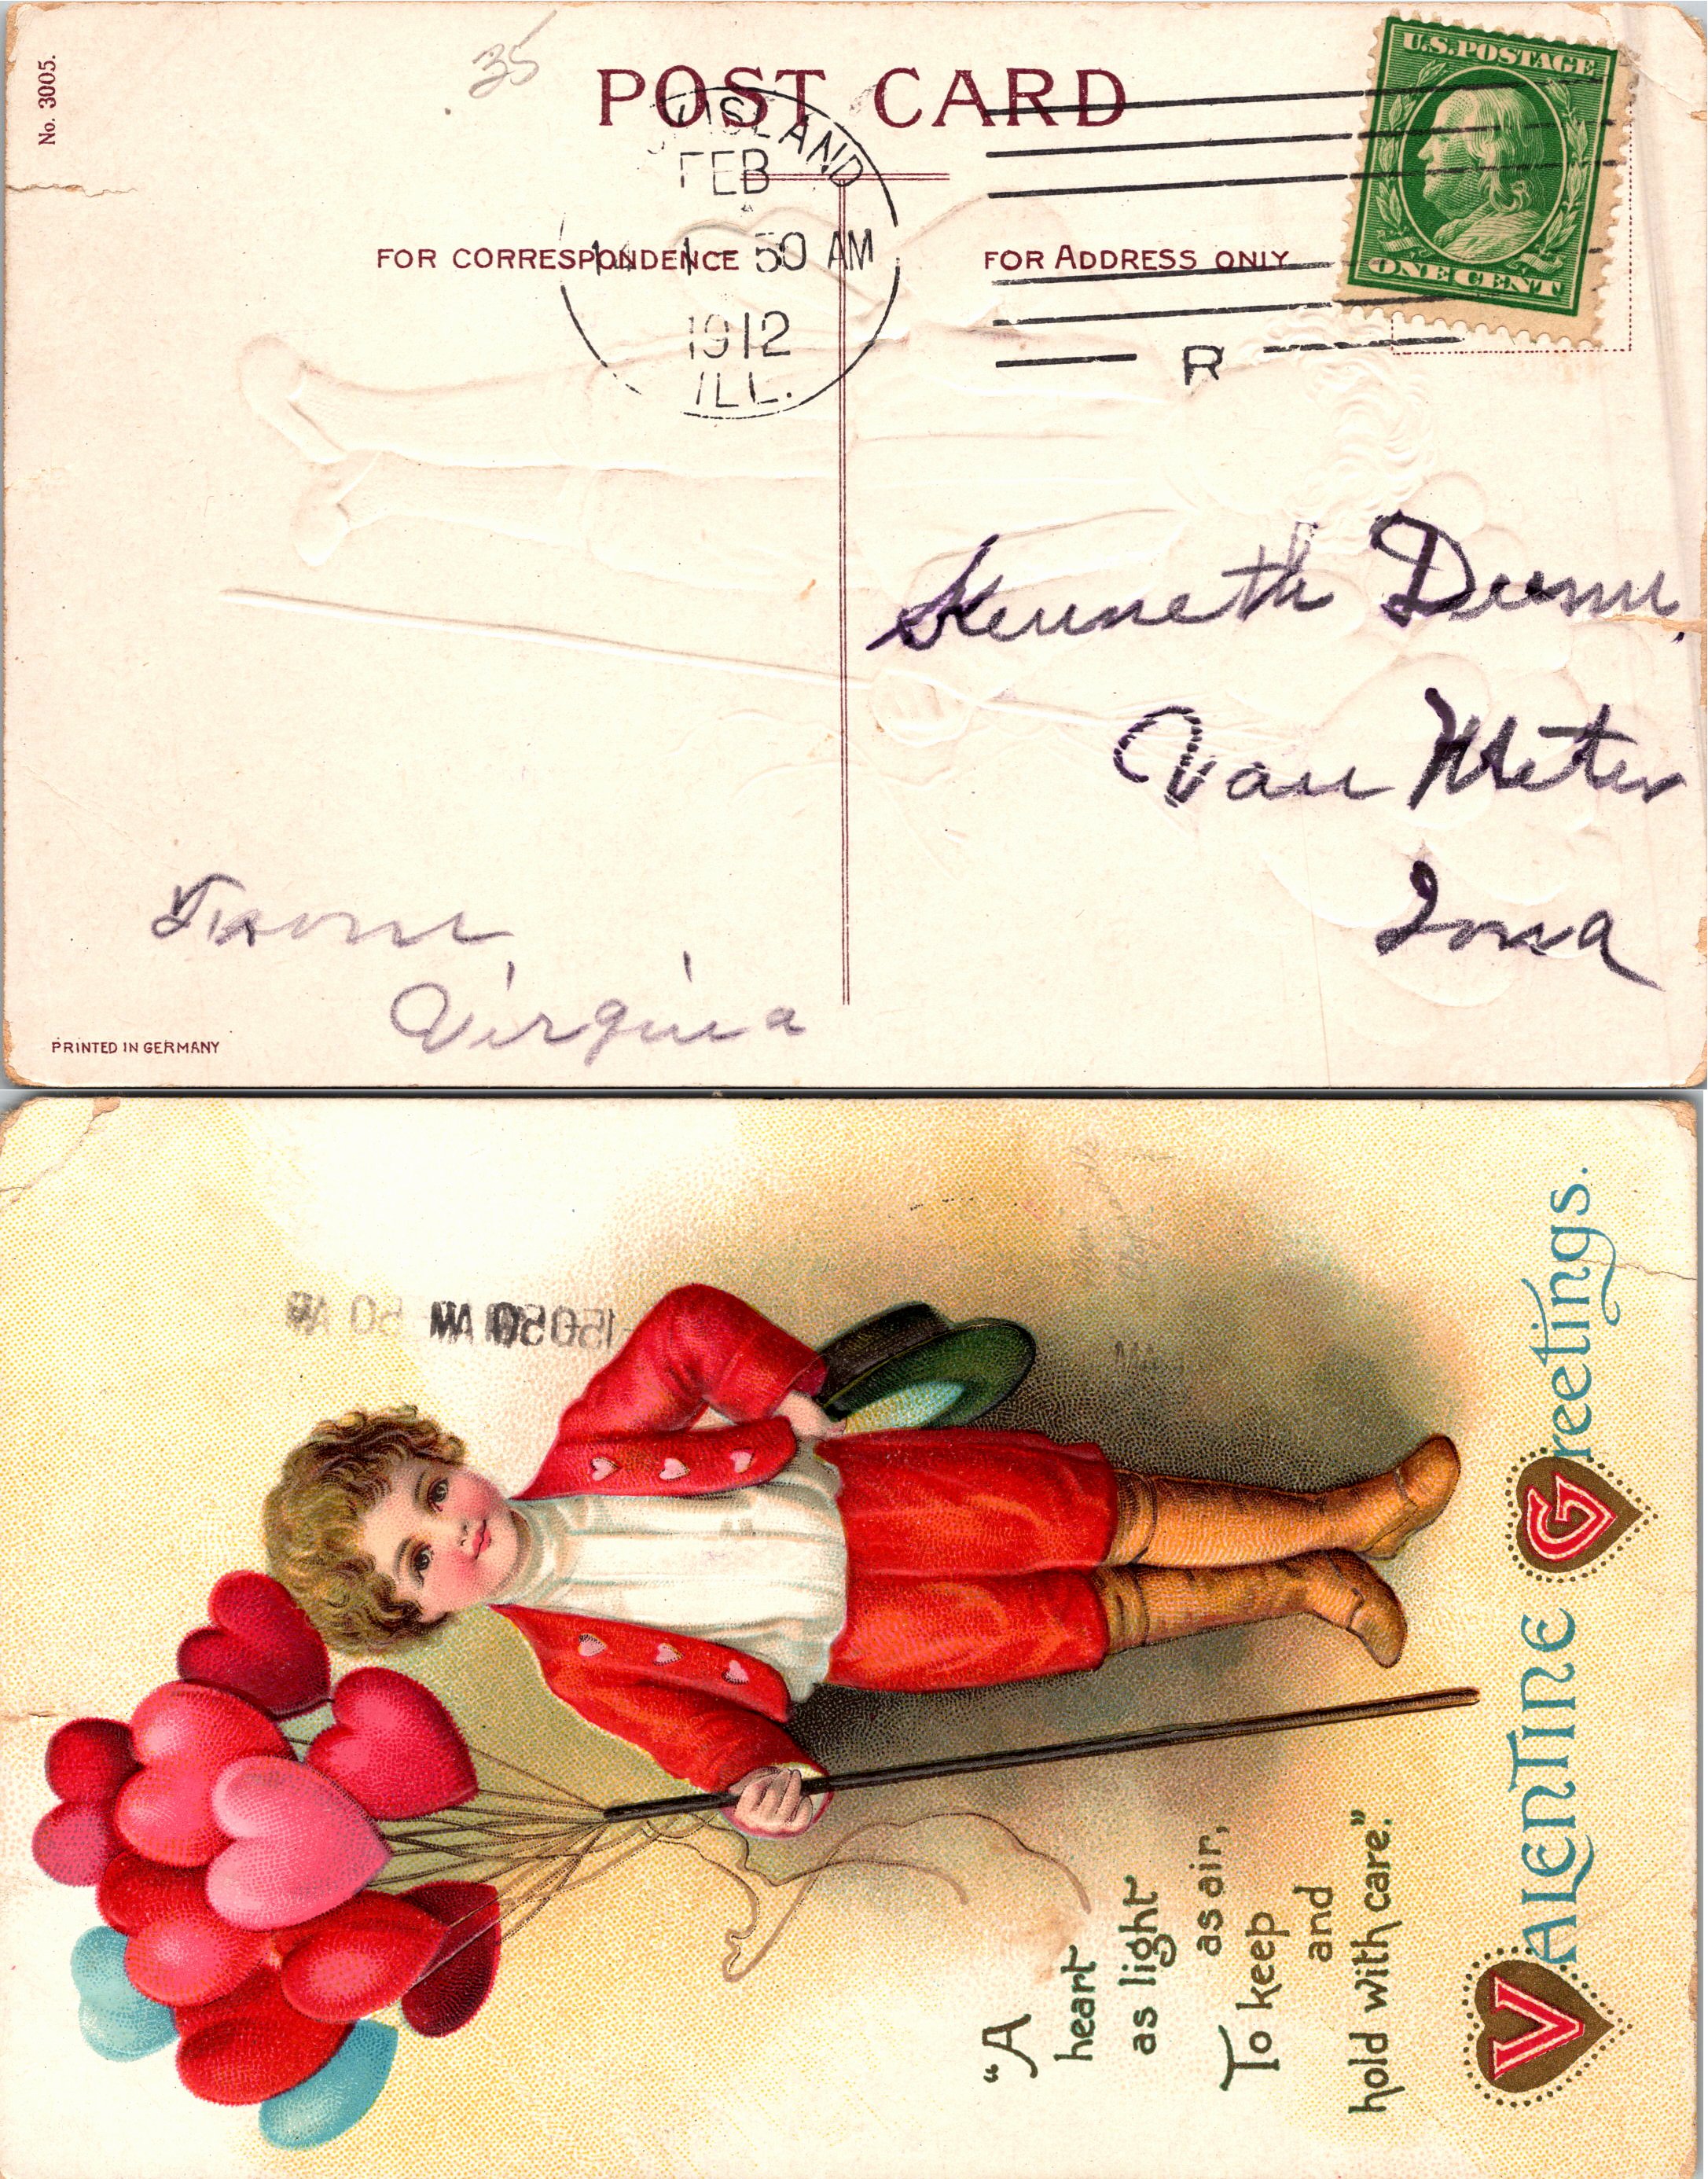 No. 3005.
35
POST CARD
U.S. POSTAGE
ISLAND
FEB
50 AM
FOR CORRESPONDENCE
FOR ADDRESS ONLY
ONE CENT
1912
ILL.
R
Kenneth
Van Meter
Iowa
From
Virginia
PRINTED IN GERMANY
"A
heart
as light
as air,
To keep
and
hold with care."
VALENTINE GREETINGS.